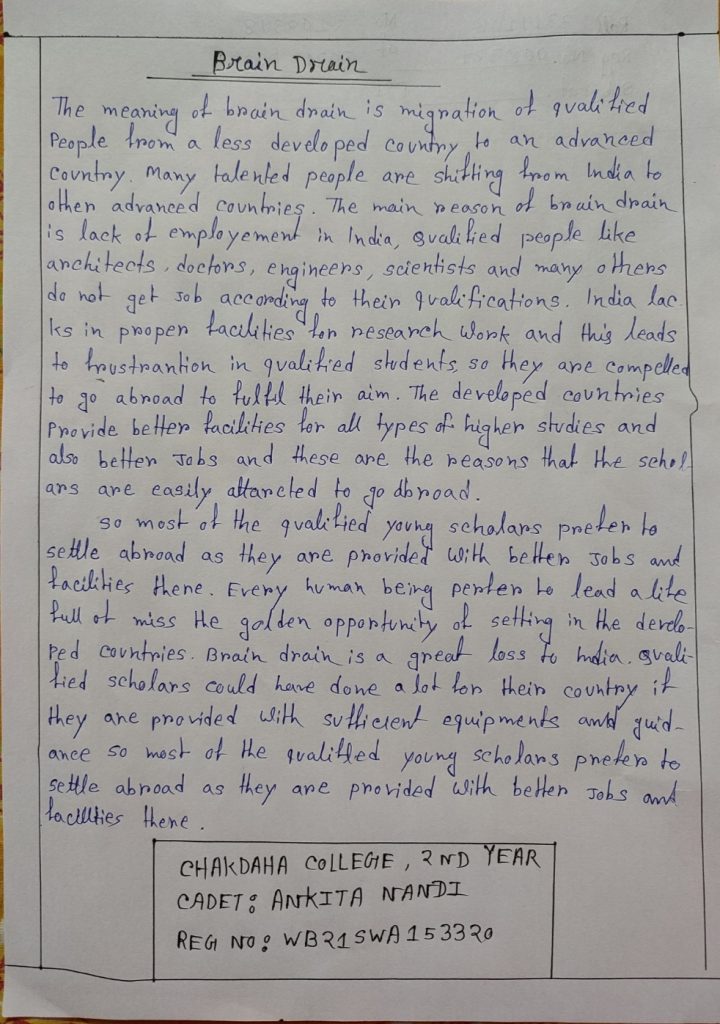 Brain Drain
The meaning of brain drain is migration of qualified
People from a less developed country to an advanced
Country. Many talented people are shifting from India to
other advanced countries. The main reason of brain drain
is lack of employement in India, Qualified people like
architects, doctors, engineers, scientists and many others
do not get job according to their qualifications. India lac-
ks in proper facilities for research work and this leads
to frustrantion in qualified students, so they are compelled
to go abroad to fulfil their aim. The developed countries
Provide better facilities for all types of higher studies and
also better Jobs and these are the reasons that the schol-
ars are easily attarcted to go abroad.
so most of the qualified young scholars prefer to
settle abroad as they are provided with better Jobs and
facilities there. Every human being perfer to lead a life
full of miss the golden opportunity of setting in the develo-
ped countries. Brain drain is a great loss to India. Quali-
fied scholars could have done a lot for their country if
they are provided with sufficient equipments and guid-
ance so most of the qualified young scholars prefer to
settle abroad as they are provided with better Jobs and
facilities there.
CHAKDAHA COLLEGE, 2ND YEAR
CADET: ANKITA NANDI
REG NO: WB21SWA153320